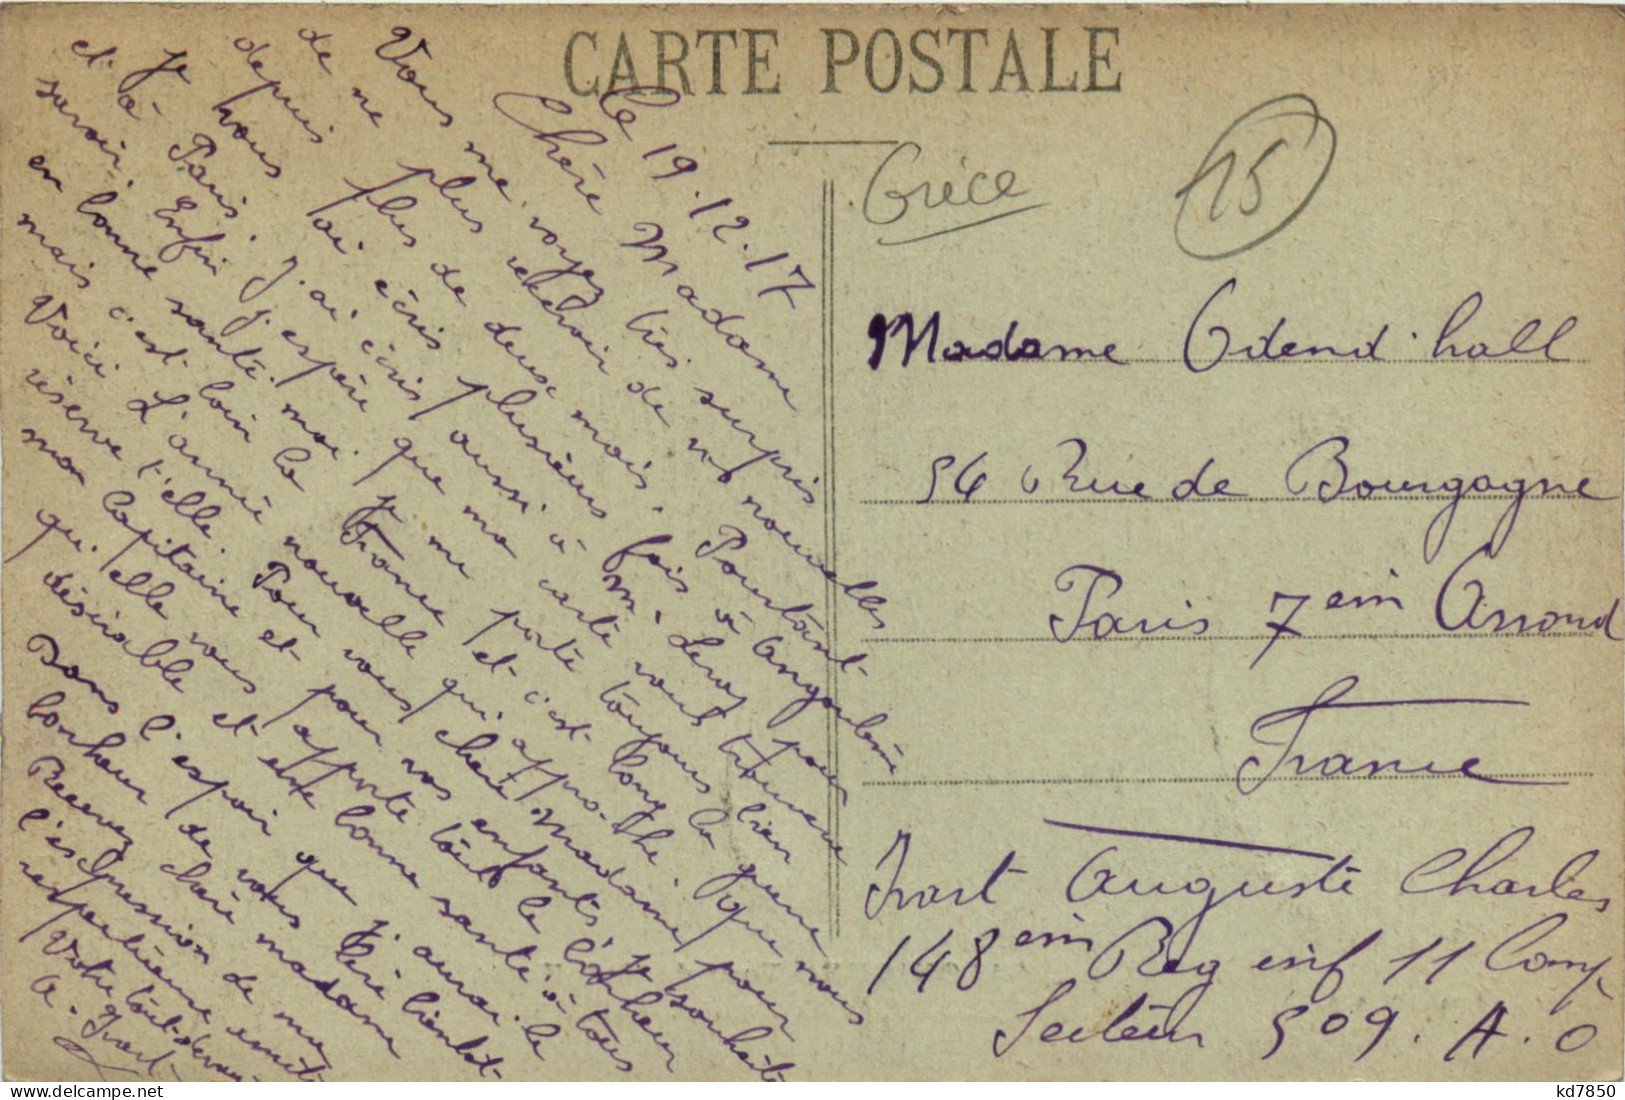 CARTE POSTALE
Le 19.12.17
Chère Madame
Vous me voyez très surpris
de ne plus recevoir de vos nouvelles
depuis plus de deux mois. Pourtant
je vous ai écris plusieurs fois à Angoulème
et à Paris. J'ai écris aussi à Mr Leroy pour
savoir. Enfin j'espère que ma carte vous trouvera
en bonne santé. moi je me porte toujours bien
mais c'est loin la France et c'est long la guerre
Voici L'anné nouvelle qui approche. Que nous
réserve t'elle. Pour vous chère Madame pour
mon Capitaine et pour vos enfants je souhaite
qu'elle vous apporte tout le bonheur
désirable et une bonne santé à tous
Dans l'espoir que j'aurai le
bonheur de vous lire bientôt
Recevez chère madame
l'expression de mes
respectueux
Votre tout dévoué
A. Trart
Grèce
15
Madame Odend'hall
56 Rue de Bourgogne
Paris 7 eim Arrond
France
Trart Auguste Charles
148 eim Reg inf 11 Comp
Secteur 509. A. O
kd7850